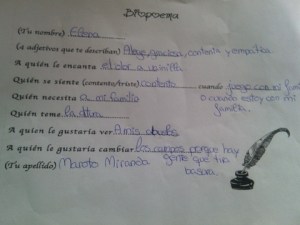 Biopoema
(Tu nombre) Elena
(4 adjetivos que te describan) Alegre, graciosa, contenta y empatica
A quién le encanta el olor a vainilla
Quién se siente (contento/triste) contenta cuando juego con mi
Quién necesita a mi familia o cuando estoy con mi
familia.
Quién teme la altura
A quien le gustaría ver A mis abuelos
A quién le gustaría cambiar los campos porque hay
(Tu apellido) Maroto Miranda gente que tira
basura.